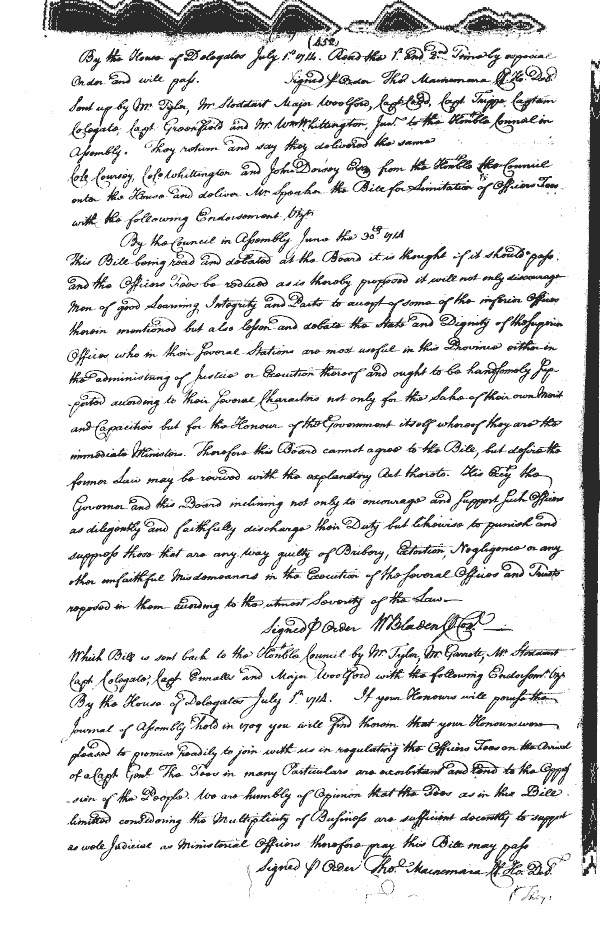 (452)
By the House of Delegates July 1st 1714. Read the 1st and 2nd Time by especial
Order and will pass. Signed p Order Thos Macnemara Cl Ho. Del.
Sent up by Mr Tyler, Mr Stoddart Major Woolford, Capt Capt Trippe Captain
Colegate, Capt Greenfield and Mr Wm Whittington, Junr to the Honble Council in
Assembly. They return and say they delivered the same
Cole Coursey, Cole Whittington and John Dorsey Esqr from the Honble the Council
enter the House and deliver Mr Speaker the Bill for Limitation of Officers Fees
with the following Endorsement Vizt
By the Council in Assembly June the 30th 1714
This Bill being read and debated at the Board it is thought if it should pass.
and the Officers Fees be reduced as is thereby proposed it will not only discourage
Men of good Learning Integrity and Parts to accept of some of the inferior Offices
therein mentioned but also lessen and debate the State and Dignity of the Superior
Offices, who in their Several Stations are most useful in this Province either in
the administring of Justice or Execution thereof and ought to be handsomely Sup
-ported according to their Several Characters not only for the Sake of their own Merit
and Capacities but for the Honour of the Government itself whereof they are the
immediate Ministers. Therefore this Board cannot agree to the Bill, but desire the
former Law may be revived with the explanatory Act thereto. His Excy the
Governor and this Board inclining not only to encourage and Support Such Officers
as diligently and faithfully discharge their Duty but likewise to punish and
suppress those that are any way guilty of Bribery, Extortion, Negligence or any
other unfaithful Misdemeanors in the Execution of the Several Offices and Trusts
reposed in them according to the utmost Severity of the Law.
Signed p Order W Bladen Cl Col
Which Bill is sent back to the Honble Council by Mr Tyler, Mr Gannett, Mr Stoddart
Capt Colegate, Capt Ennalls and Major Woolford with the following Endorsemt Vizt
By the House of Delegates July 1st 1714. If your Honours will peruse the
Journal of Assembly held in 1709 you will find therein that your Honours were
pleased to promise readily to join with us in regulating the Officers Fees on the Arrival
of a Capt Genl The Fees in many Particulars are exorbitant and tend to the Oppres
-sion of the People. We are humbly of Opinion that the Fees as in this Bill
limited considering the Multiplicity of Business are sufficient decently to support
as well Judicial as Ministerial Officers therefore pray this Bill may pass
Signed p Order Thos Macnemara Cl Ho. Del.
They